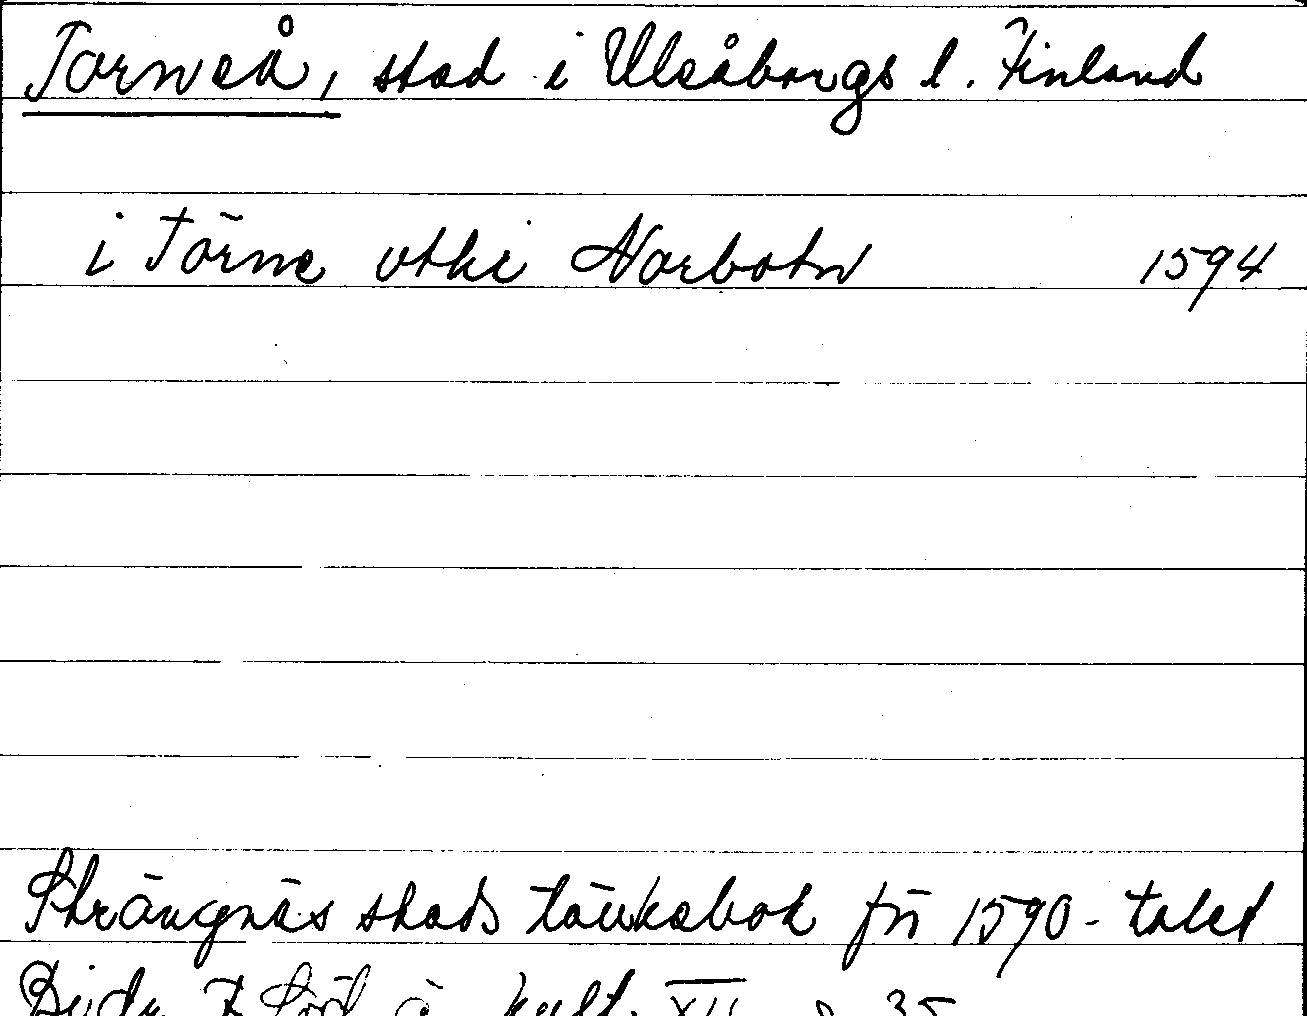 Torneå, stad i Uleåborgs l. Finland
i Törne vthi Norbotn 1594
Strängnäs stads tänkebok för 1590-talet
Bidr. t. Söd. ä. kult. XII s 35